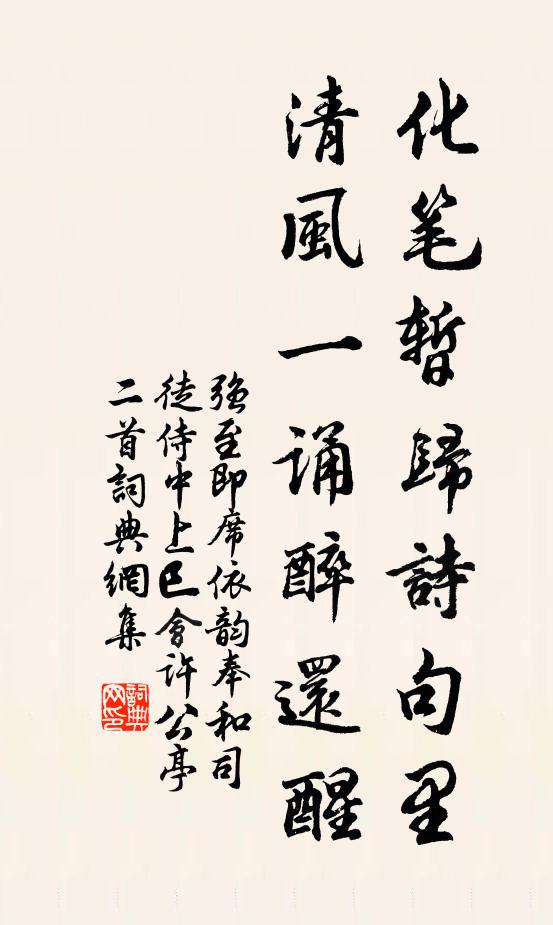 化笔暫歸詩句里
清風一誦醉還醒
强至即席依韵奉和司
徒侍中上巳會許公亭
二首詞典網集
詞典網印